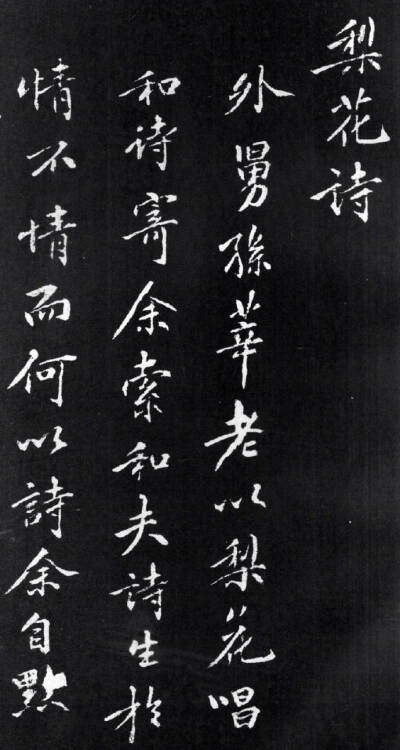 梨花诗
外舅孫莘老以梨花唱
和诗寄余索和夫詩生於
情不情而何以詩余自點